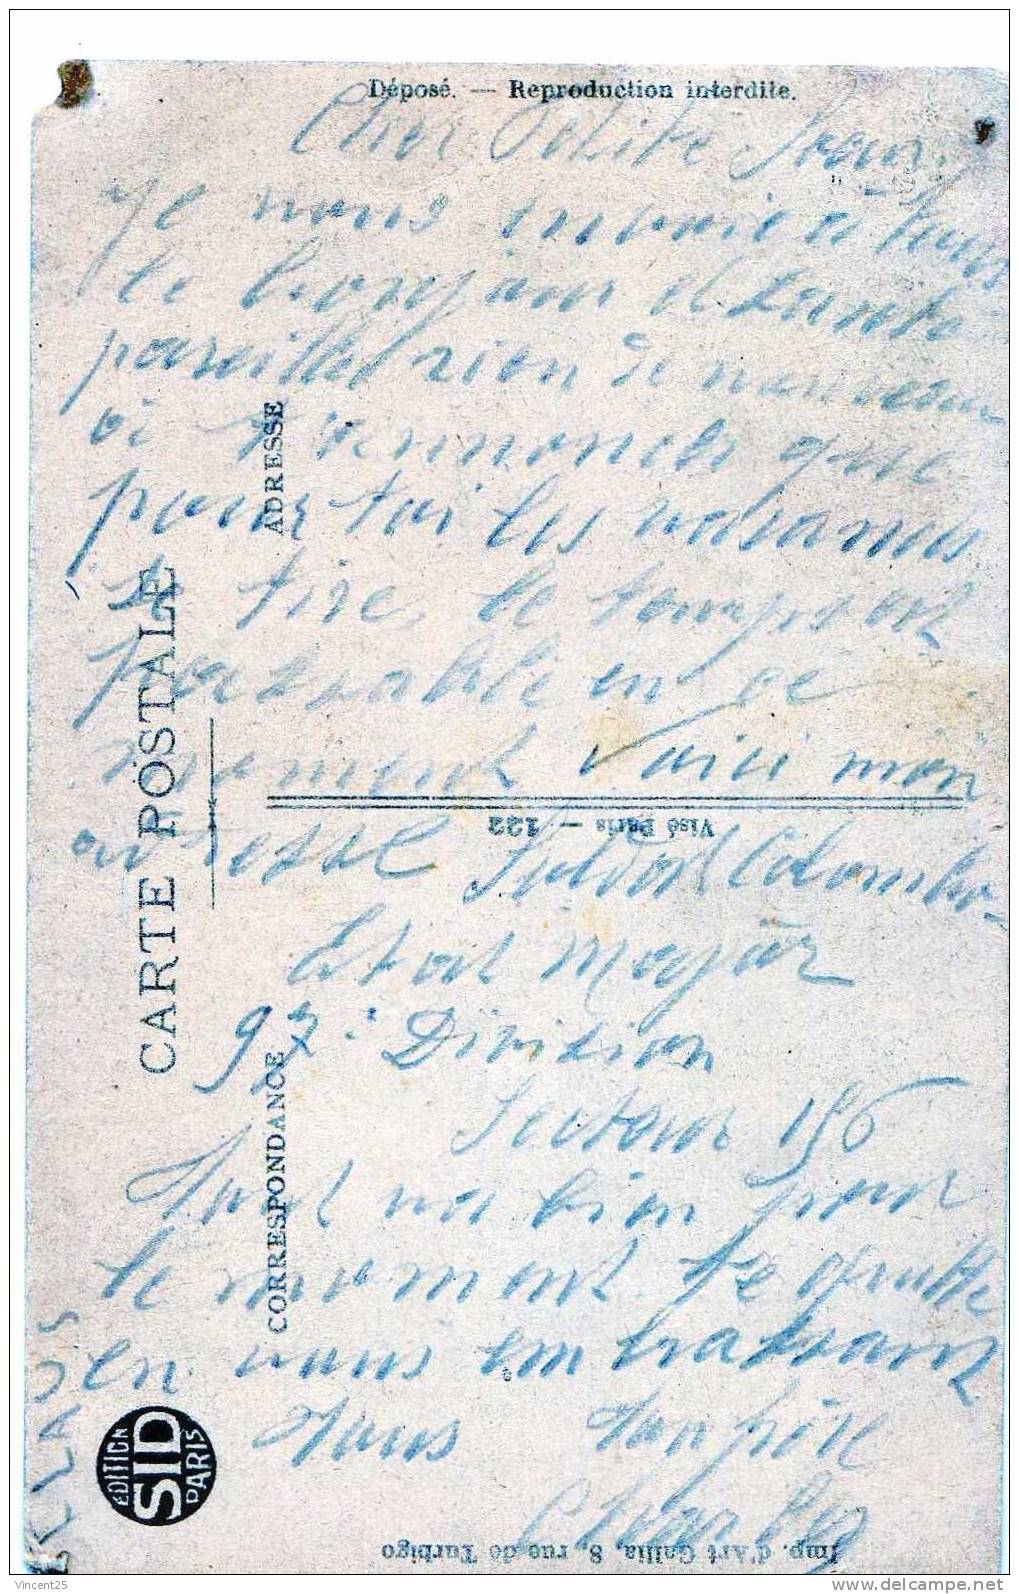 Déposé. — Reproduction interdite.
Cher Petite Jean.
Je vous envoie à tous
le bonjour et
pareillet rien de nouveau
à t'ennoncer que
pour toi les vacances
se tire, le temps est
passable en ce
moment Voici mon
adresse Soldat Colombo
Etat Major
97e Division
Secteur 156
Tout va bien pour
le moment. Je quitte
en vous embrassant
tous ton père
Charles
CARTE POSTALE
ADRESSE
CORRESPONDANCE
Visé Paris — 122
EDITION
SID
PARIS
Imp. d'Art Gallia, 8, rue de Turbigo
Vincent25
www.delcampe.net